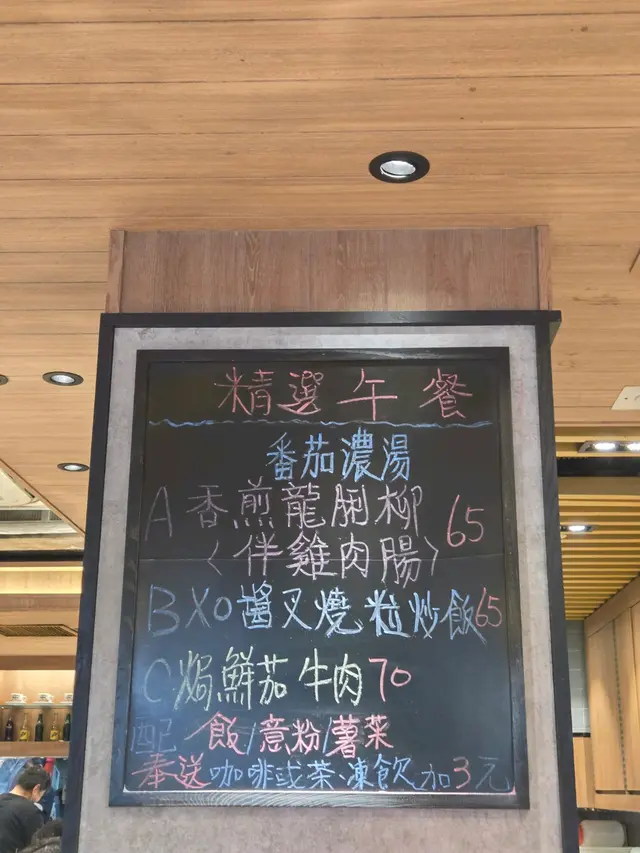 精選午餐
番茄濃湯
A 香煎龍脷柳 65
〈伴雞肉腸〉
B XO醬叉燒粒炒飯 65
C 焗鮮茄牛肉 70
配 飯/意粉/薯菜
奉送咖啡或茶凍飲加3元